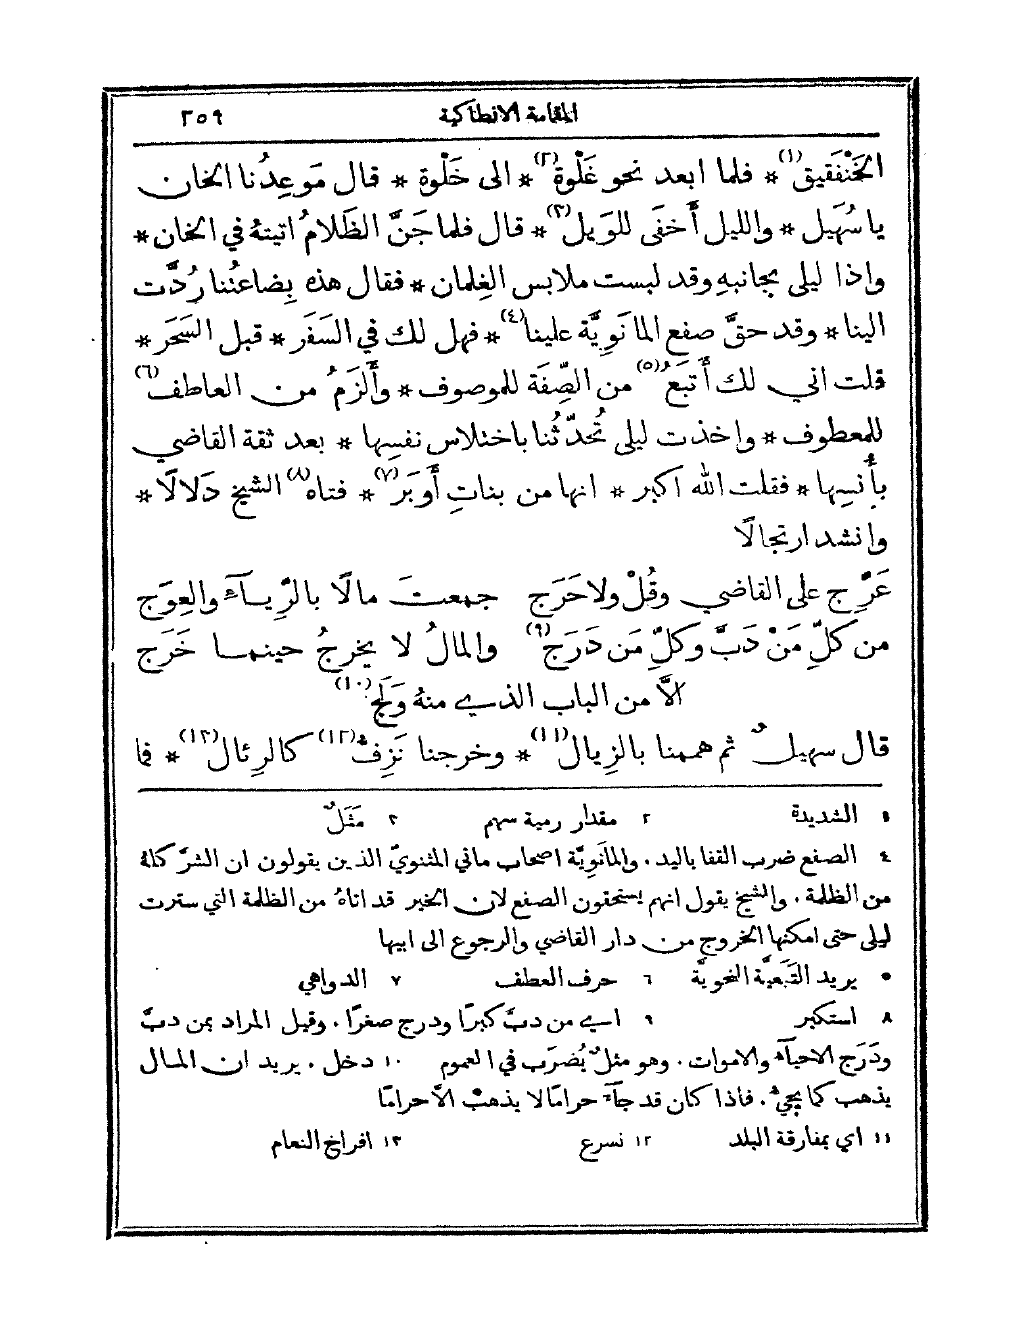 المقامة الانطاكية ٢٥٩
الخَنْفَقيق(١) * فلما ابعد نحو غَلْوة(٢) * الى خَلْوة * قال مَوعِدُنا الخان
يا سُهَيل * والليل أَخفَى للوَيل(٣) * قال فلما جَنَّ الظَلامُ اتيتهُ في الخان *
واذا ليلى بجانبهِ وقد لبست ملابس الغِلمان * فقال هذه بِضاعتُنا رُدَّت
الينا * وقد حقَّ صفع المانَوِيَّة علينا(٤) * فهل لك في السَفَر * قبل السَحَر *
قلت اني لك أَتبَعُ(٥) من الصِّفَة للموصوف * وأَلزَمُ من العاطف(٦)
للمعطوف * واخذت ليلى تُحدّثُنا باختلاس نفسِها * بعد ثقة القاضي
بأُنسِها * فقلت الله اكبر * انها من بناتِ أَوبَر(٧) * فتاه(٨) الشيخ دَلالًا *
وانشد ارتجالًا
عَرِّج على القاضي وقُلْ ولا حَرَج جمعتَ مالًا بالرِّيـآء والعِوَج
من كلِّ مَنْ دَبَّ وكلِّ مَن دَرَج(٩) والمالُ لا يخرجُ حينمـا خَرَج
الاَّ من الباب الذي منهُ وَلَج(١٠)
قال سهيلٌ ثم هممنا بالزِيال(١١) * وخرجنا نَزِفُّ(١٢) كالرِئال(١٣) * فما
١ الشديدة ٢ مقدار رمية سهم ٣ مَثَلٌ
٤ الصفع ضرب القفا باليد. والمانَوِيَّة اصحاب ماني المثنويّ الذين يقولون ان الشرّ كلهُ
من الظلمة. والشيخ يقول انهم يستحقون الصفع لان الخير قد اتاهُ من الظلمة التي سترت
ليلى حتى امكنها الخروج من دار القاضي والرجوع الى ابيها
٥ يريد التَبَعيَّة النحويَّة ٦ حرف العطف ٧ الدواهي
٨ استكبر ٩ اي من دبَّ كبرًا ودرج صغرًا. وقيل المراد بمن دبَّ
ودَرَج الاحيآء والاموات. وهو مثلٌ يُضرَب في العموم ١٠ دخل. يريد ان المال
يذهب كما يجيءُ. فاذا كان قد جآءَ حرامًا لا يذهبُ الاَّ حرامًا
١١ اي بمفارقة البلد ١٢ نسرع ١٣ افراخ النعام